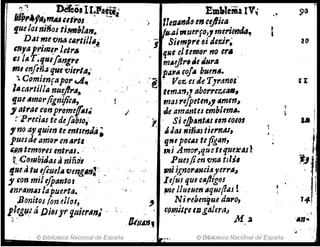 Deseos II. Parte,
que los niños tiemblan.
Dasme vna cartilla,
cuya primer letra
es la T. que sangre
me enseña que vierta,
Comiença por
la cartilla nuestra,
que amor significa,
y atrae con promessas:
Precias te de sabio,
y no ay quien te entienda;
pues de amor en arte
con temores entras.
Combidas à niños
que à tu escuela vengan;
y con mil espantos
enramas la puerta.
Bonitos son ellos,
plegue à Dios yr quieran;
Emblema IV.
90
lleuando en cestica
su almuerço, y merienda,
Siempre oi dezir,
que el temor no era
maestro de dura
para cosa buena.
Voz es de Tyranos
teman, y aborrezcan,
mas respeten, y amen,
de amantes emblema.
Si espantas con cocos
à las niñas tiernas,
que pocas te sigan,
mi Amor, que te quexas?
Pues si en vna silla
mi ignorancia yerra,
Iesus que castigos
me llueuen aquestas!
Ni rebenque duro,
comitre en galera,
M 2
© Biblioteca Nacional de España
© Biblioteca Nacional de España